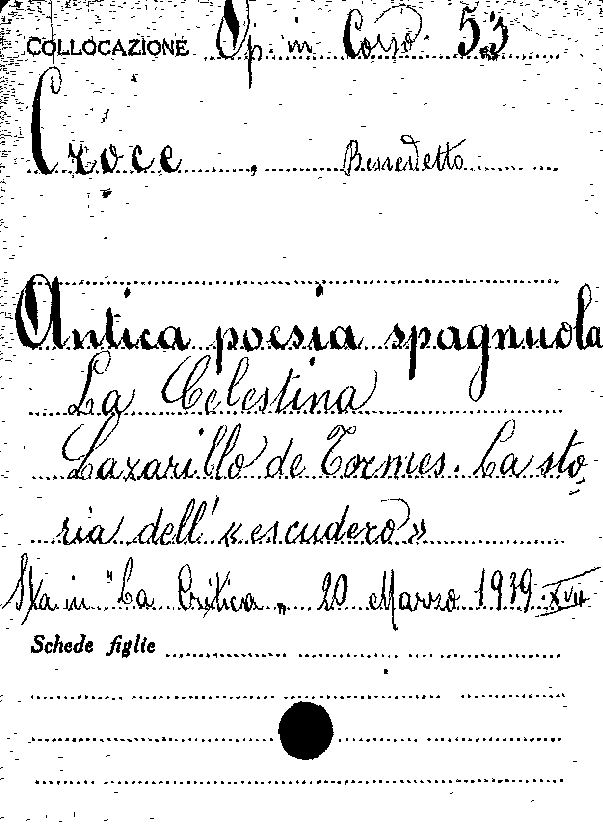 COLLOCAZIONE Op. in Corso. 53
Croce, Benedetto
Antica poesia spagnuola
La Celestina
Lazarillo de Tormes. La sto-
ria dell' «escudero»
Sta in "La Critica" 20 Marzo 1939. XVII
Schede figlie